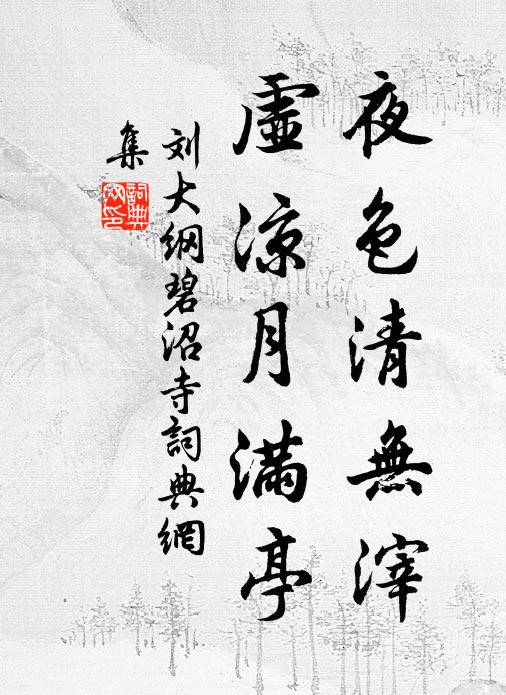 夜色清無滓
虛涼月滿亭
刘大纲碧沼寺詞典網
集
詞典網印